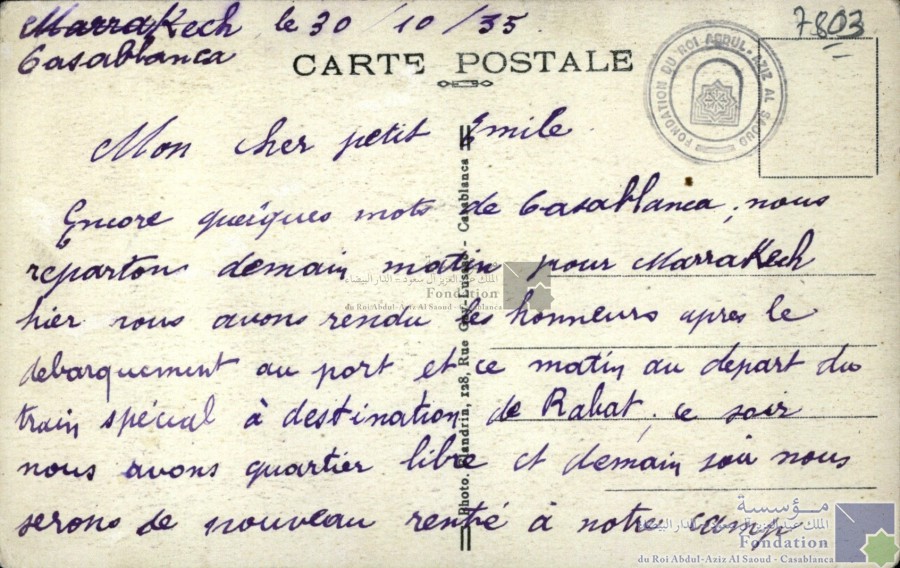 Marrakech le 30/10/35
Casablanca
7803
CARTE POSTALE
FONDATION DU ROI ABDUL-AZIZ AL SAOUD
Mon cher petit Emile
Encore quelques mots de Casablanca, nous
repartons demain matin pour Marrakech
hier nous avons rendu les honneurs apres le
debarquement au port et ce matin au depart du
train spécial à destination de Rabat. ce soir
nous avons quartier libre et demain soir nous
serons de nouveau rentré à notre camp
Photo. 128, Rue Gay-Lussac - Casablanca
مؤسسة
الملك عبد العزيز آل سعود - الدار البيضاء
Fondation
du Roi Abdul-Aziz Al Saoud - Casablanca
مؤسسة
الملك عبد العزيز آل سعود - الدار البيضاء
Fondation
du Roi Abdul-Aziz Al Saoud - Casablanca